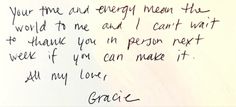 Your time and energy mean the
world to me and I can't wait
to thank you in person next
week if you can make it.
All my love,
Gracie